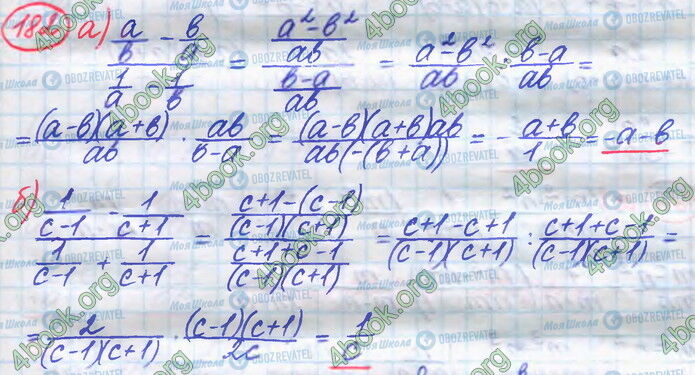 18.1 а) (a/в - в/a)/(1/a - 1/в) = ((a²-в²)/aв)/((в-a)/aв) = (a²в²)/(aв) : (в-a)/(aв) =
= ((a-в)(a+в))/(aв) · (aв)/(в-a) = ((a-в)(a+в)aв)/(aв(-(в+a))) = - (a+в)/1 = -a-в
б) (1/(c-1) - 1/(c+1))/(1/(c-1) + 1/(c+1)) = ((c+1-(c-1))/((c-1)(c+1)))/((c+1+c-1)/((c-1)(c+1))) = (c+1-c+1)/((c-1)(c+1)) : (c+1+c-1)/((c-1)(c+1)) =
= 2/((c-1)(c+1)) · ((c-1)(c+1))/(2c) = 1/c
4book.org
Моя Школа
OBOZREVATEL